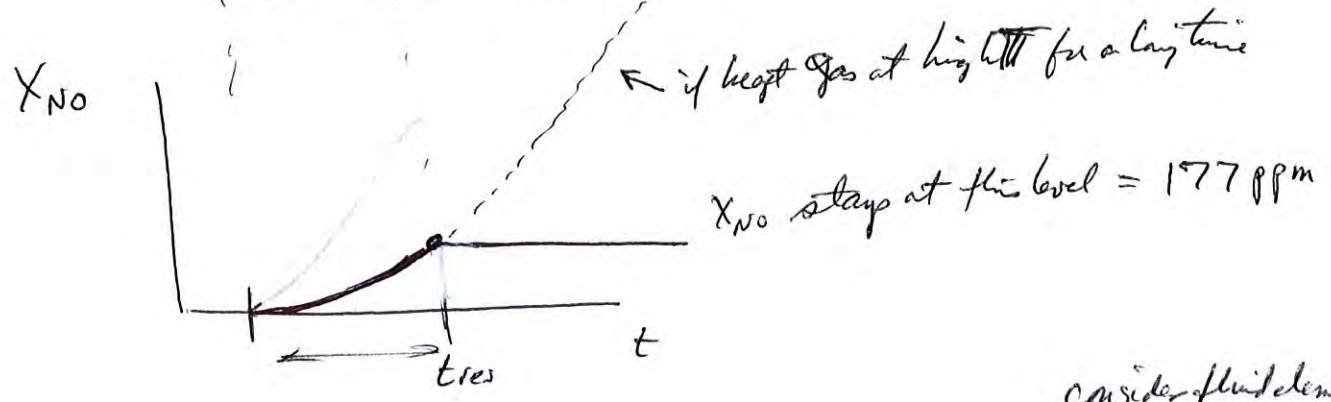 X_NO
← if kept gas at high T for a long time
X_NO stays at this level = 177 ppm
t
t_res
consider fluid elem